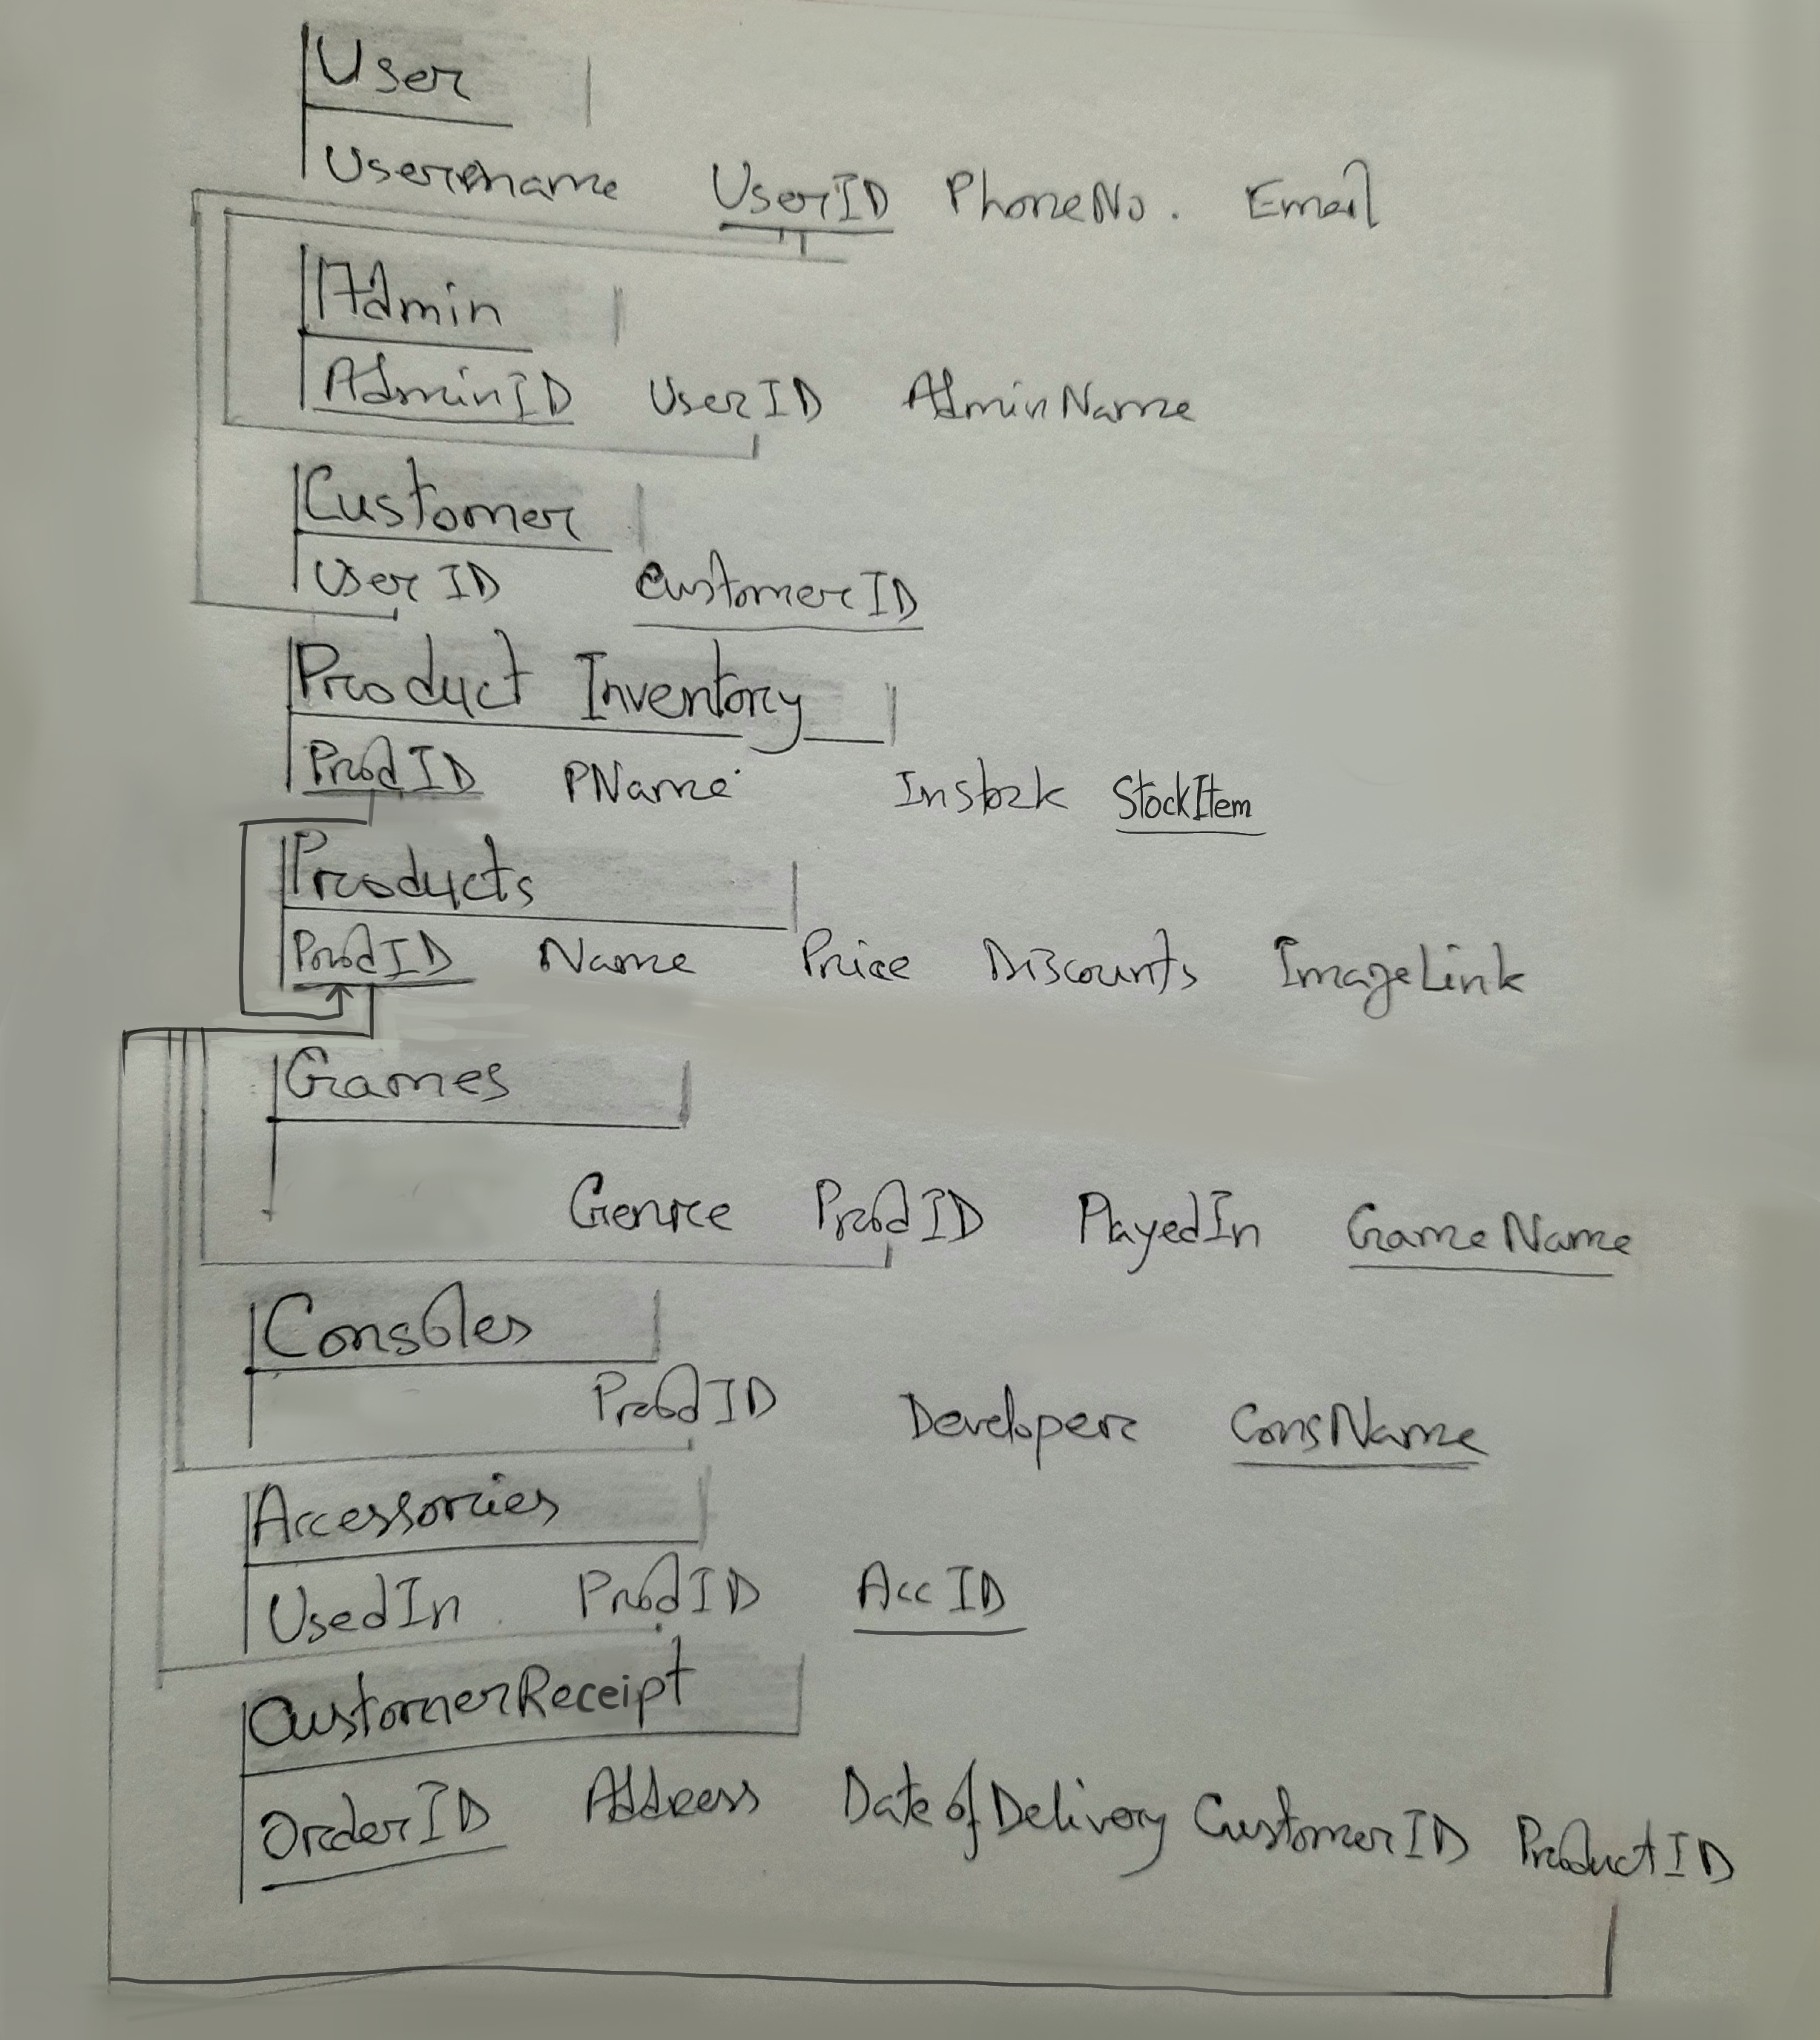 User
Username UserID PhoneNo. Email
Admin
AdminID UserID AdminName
Customer
UserID CustomerID
Product Inventory
ProdID PName InStock StockItem
Products
ProdID Name Price Discounts ImageLink
Games
Genre ProdID PlayedIn GameName
Consoles
ProdID Developer ConsName
Accessories
UsedIn ProdID AccID
CustomerReceipt
OrderID Address DateofDelivery CustomerID ProductID